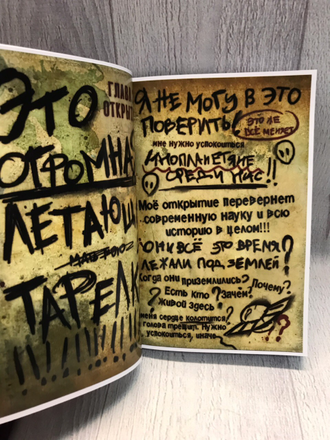 ГЛАВА
ОТКРЫТ
ЭТО
ОГРОМНА
ЛЕТАЮЩ
ТАРЕЛК
!!!!!!!!!!
Я НЕ МОГУ В ЭТО
ПОВЕРИТЬ!
ЭТО ЖЕ
ВСЁ МЕНЯЕТ
мне нужно успокоиться
ИНОПЛАНЕТЯНЕ
СРЕДИ НАС!!
Моё открытие перевернет
современную науку и всю
историю в целом!!!
ОНИ ВСЁ ЭТО ВРЕМЯ
ЛЕЖАЛИ ПОД ЗЕМЛЕЙ?
Когда они приземлились?
Почему?
Есть Кто
Живой здесь?
Зачем?
меня сердце колотится?
голова трещит. Нужно
успокоиться, иначе